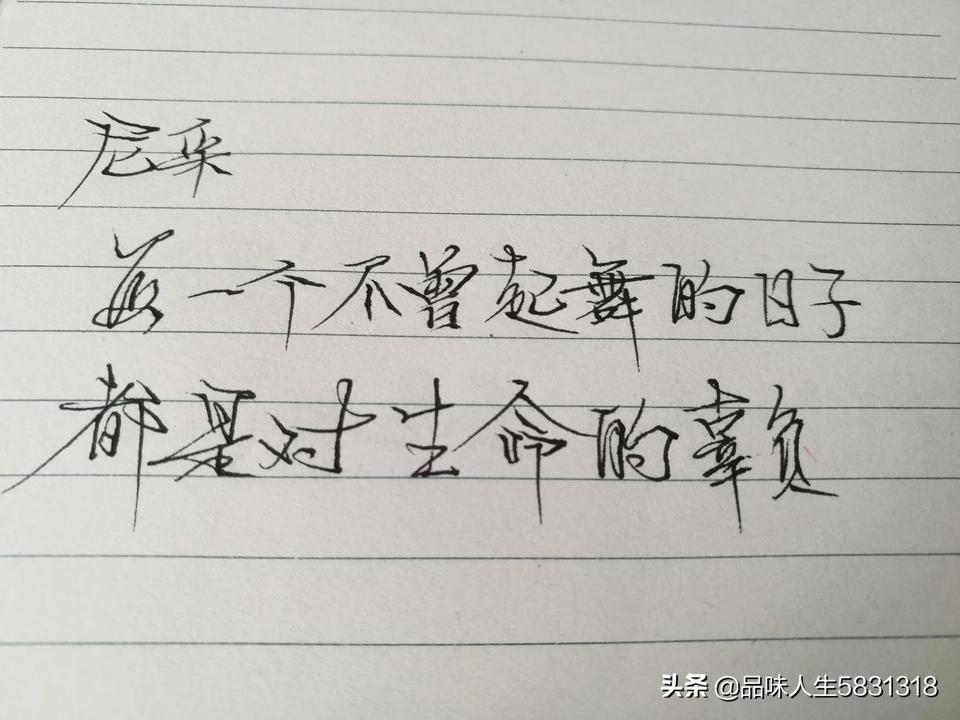 尼采
每一个不曾起舞的日子
都是对生命的辜负
头条 @品味人生5831318